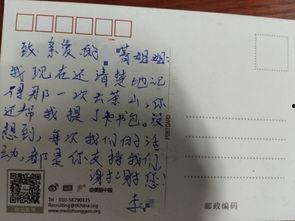 致亲爱的 霄姐姐:
我现在还清楚地记
得那一次去茶山,你
还帮我提了书包。没
想到,每次我们的活
动,都是你支持我们。
谢谢您!
李
POSTCARD
Tel: 010-58790335
美丽中国
邮政编码